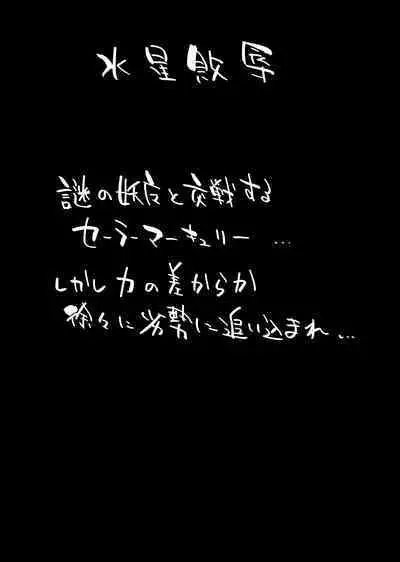 水星敗辱
謎の妖魔と交戦する
セーラーマーキュリー…
しかし力の差からか
徐々に劣勢に追い込まれ…